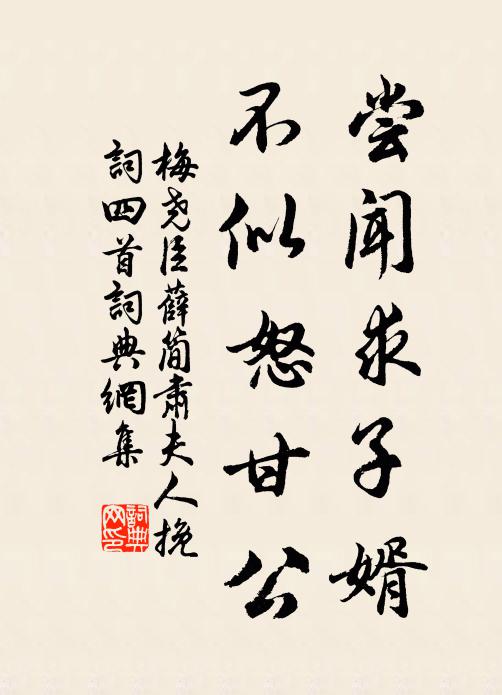 尝闻求子婿
不似怒甘公
梅尧臣薛简肃夫人挽
詞四首詞典網集
詞典网印